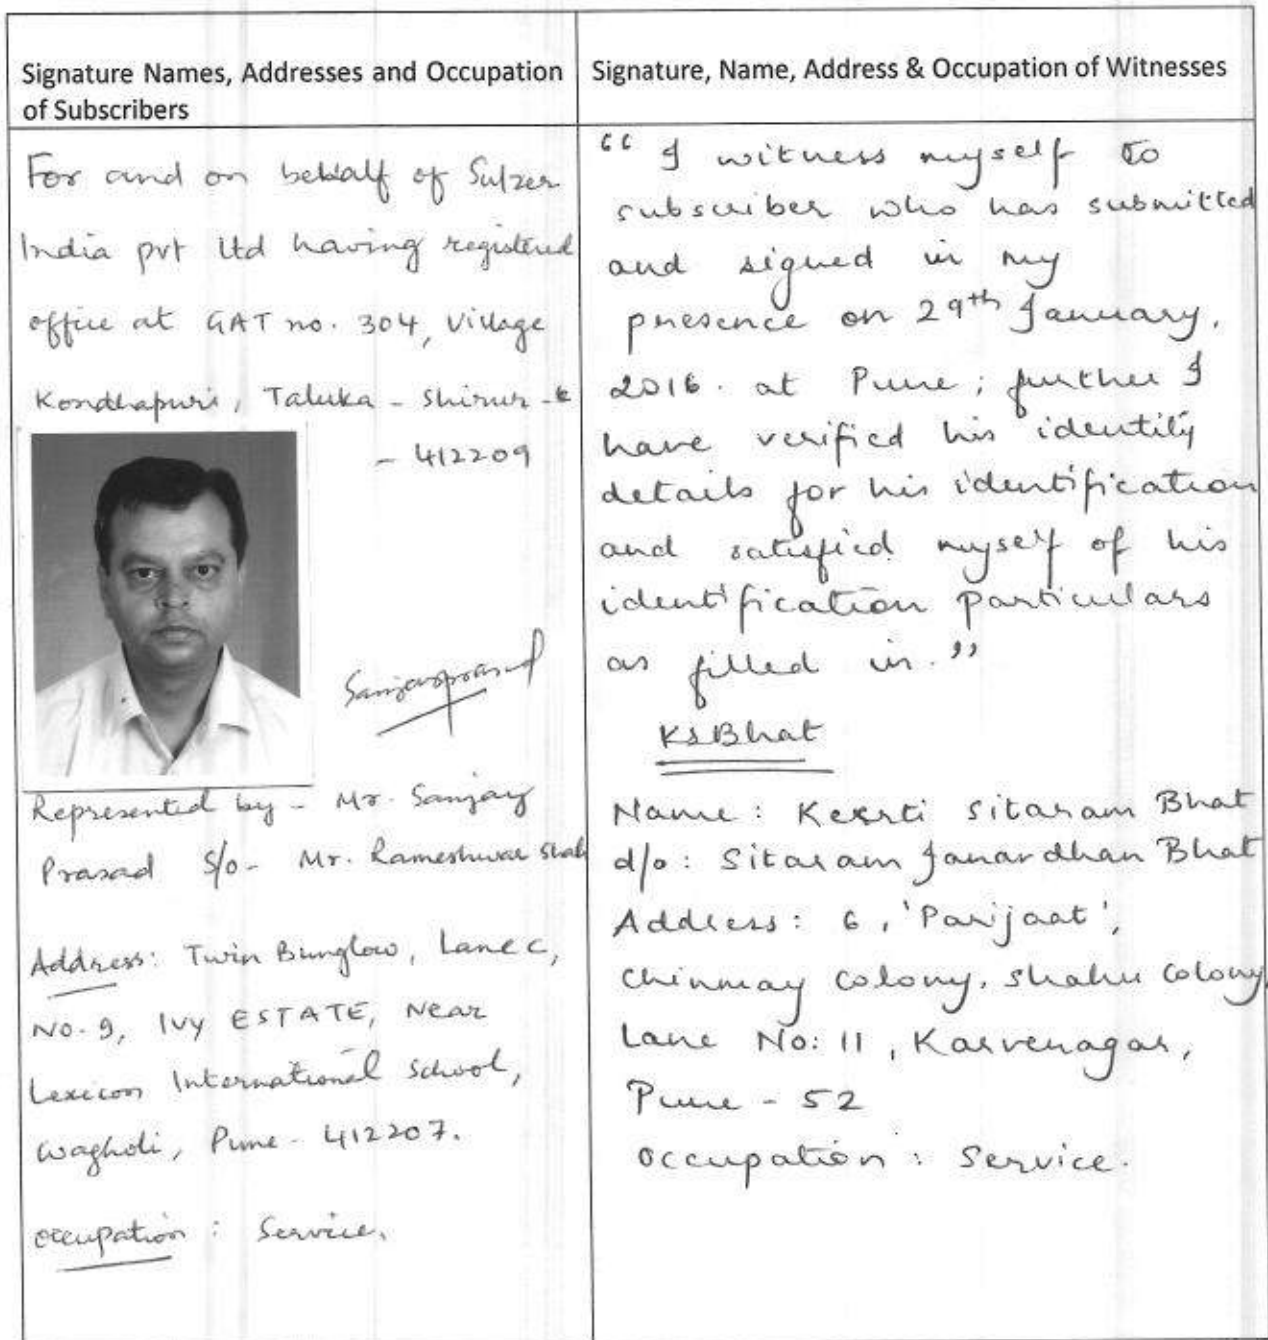 Signature Names, Addresses and Occupation
of Subscribers
For and on behalf of Sulzer
India pvt ltd having registered
office at GAT no. 304, Village
Kondhapuri, Taluka - Shirur -
- 412209
Sanjayprasad
Represented by - Mr. Sanjay
Prasad S/o - Mr. Rameshwar Shah
Address: Twin Bunglow, Lane C,
No. 9, IVY ESTATE, Near
Lexicon International School,
Wagholi, Pune - 412207.
Occupation : Service.
Signature, Name, Address & Occupation of Witnesses
“ I witness myself to
subscriber who has submitted
and signed in my
presence on 29th January,
2016. at Pune; further I
have verified his identity
details for his identification
and satisfied myself of his
identification particulars
as filled in.”
KSBhat
Name: Keerti Sitaram Bhat
d/o: Sitaram Janardhan Bhat
Address: 6, 'Parijaat',
Chinmay Colony, Shahu Colony,
Lane No: 11, Karvenagar,
Pune - 52
Occupation : Service.